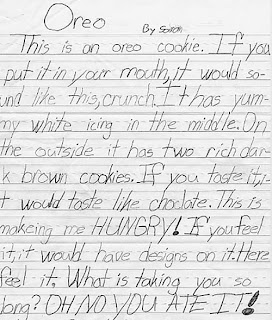 Oreo
By
This is an oreo cookie. If you
put it in your mouth, it would so-
und like this, crunch. It has yum-
my white icing in the middle. On
the outside it has two rich dar-
k brown cookies. If you taste it, i-
t would taste like choclate. This is
makeing me HUNGRY! If you feel
it, it would have designs on it. Here
feel it. What is taking you so
long? OH NO YOU ATE IT!